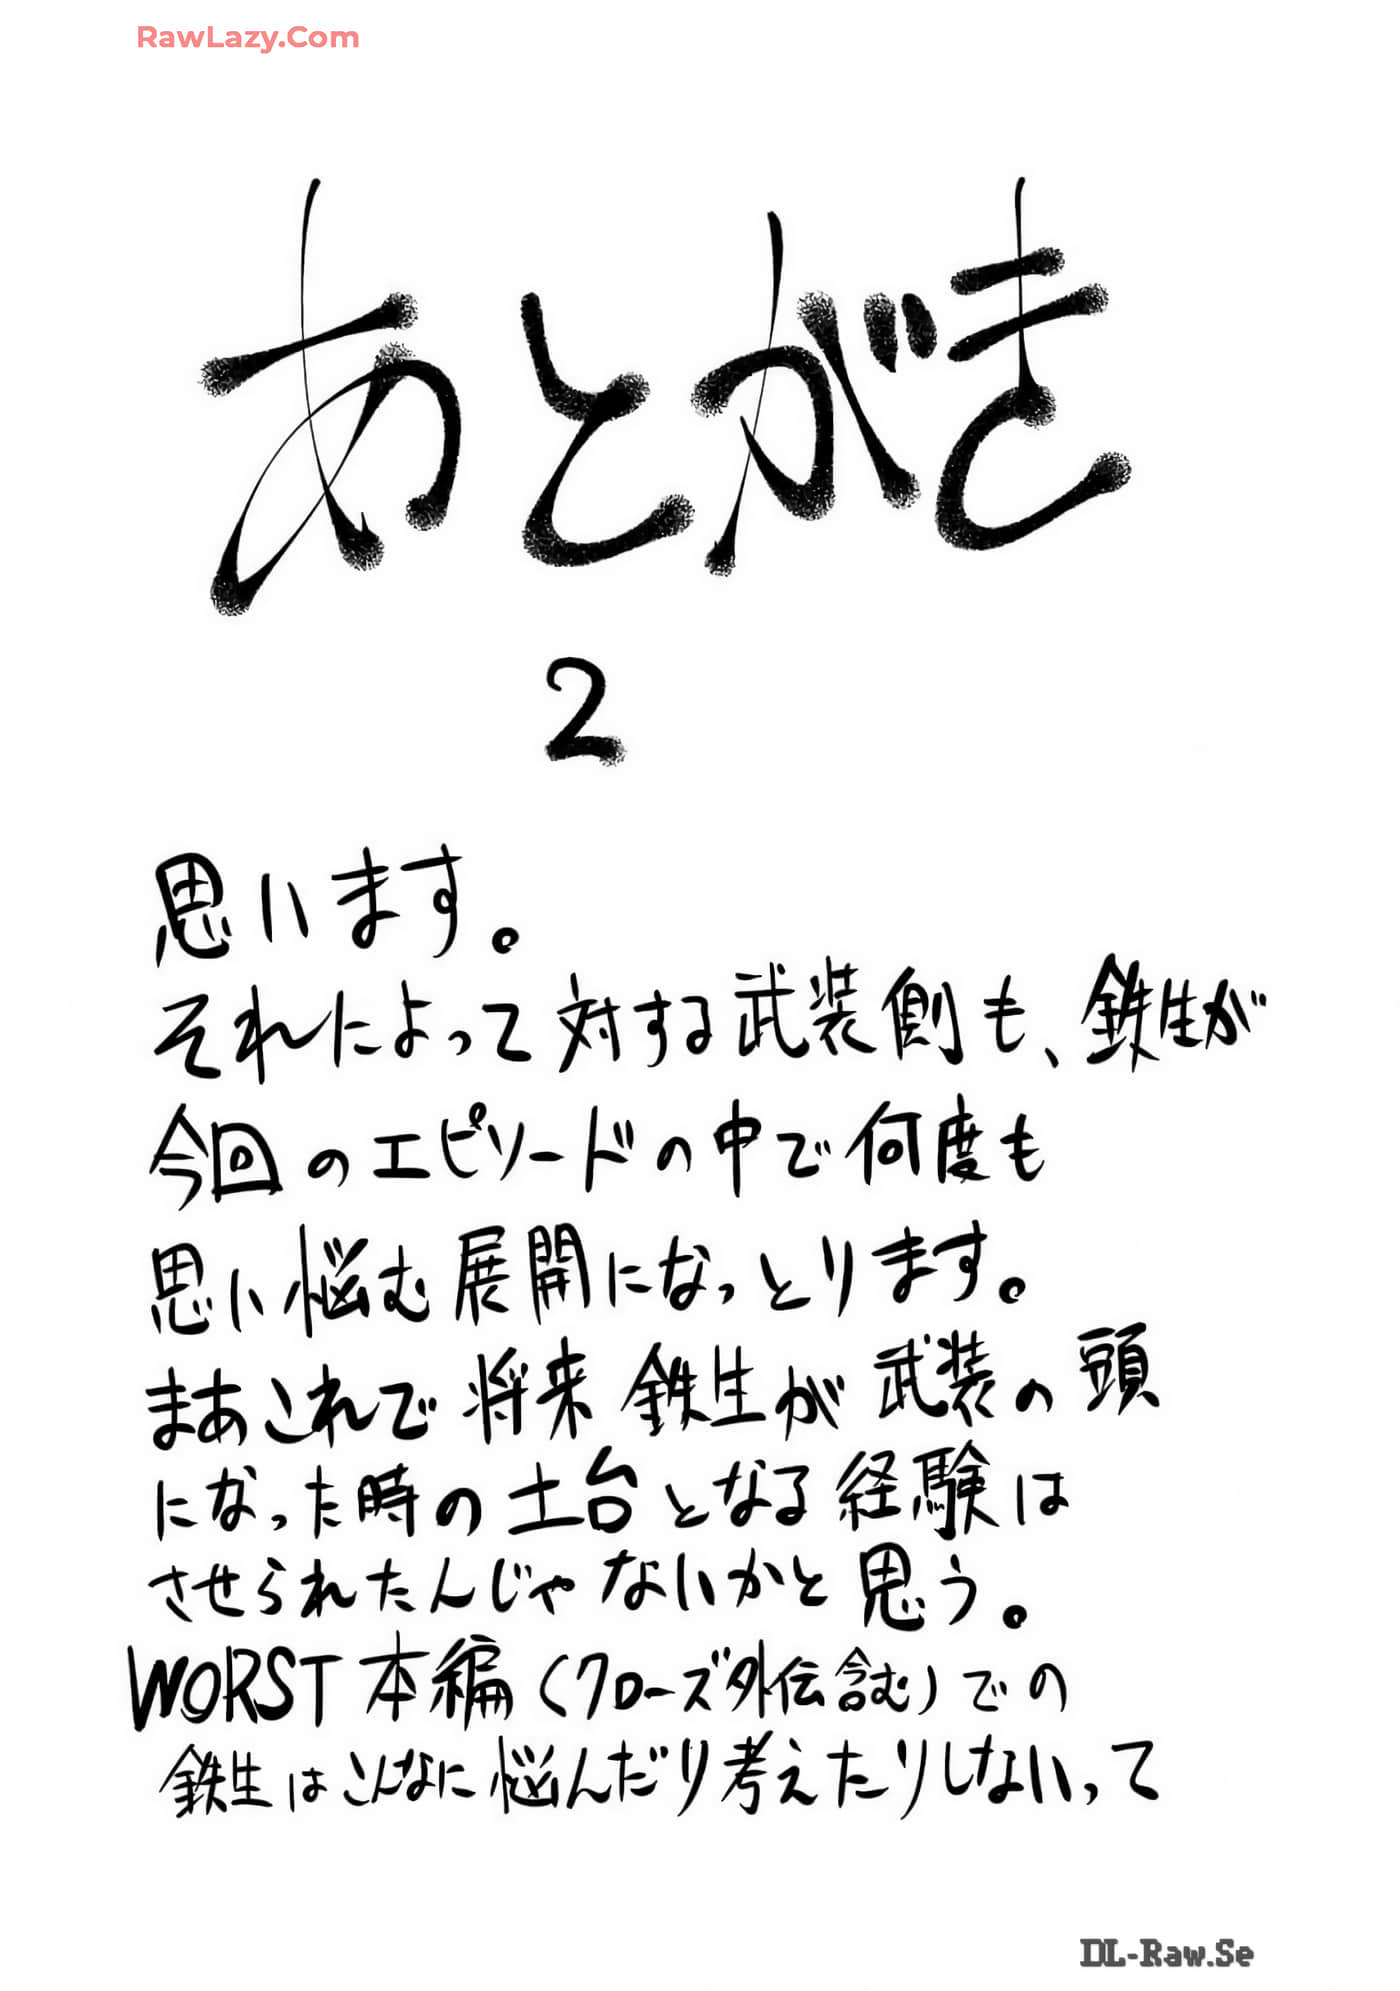 RawLazy.Com
あとがき
2
思います。
それによって対する武装側も、鉄生が
今回のエピソードの中で何度も
思い悩む展開になっとります。
まあこれで将来鉄生が武装の頭
になった時の土台となる経験は
させられたんじゃないかと思う。
WORST本編(クローズ外伝含む)での
鉄生はこんなに悩んだり考えたりしないって
DL-Raw.Se